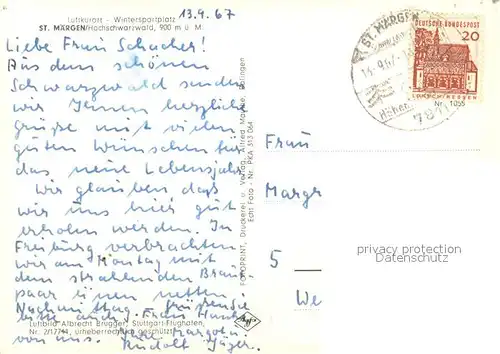 Luftkurort - Wintersportplatz
ST. MÄRGEN/Hochschwarzwald, 900 m ü. M.
13.9.67
Liebe Frau Schacher!
Aus dem schönen
Schwarzwald senden
wir Ihnen herzliche
Grüße mit vielen
guten Wünschen für
das neue Lebensjahr.
Wir glauben daß
wir uns hier gut
erholen werden. In
Freiburg verbrachten
wir am Montag mit
dem strahlenden Braut-
paar einen netten
Nachmittag. Grüßen Sie
bitte auch Frau Hunk
von uns. Ihre Margot u.
Rudolf Jäger.
Luftbild Albrecht Brugger, Stuttgart-Flughafen,
Nr. 2/17741, urheberrechtlich geschützt
FOTOPRINT, Druckerei u. Verlag, Alfred
Echt Foto - Nr. PKA 313 064
Agfa
ST. MÄRGEN
Höhen
7811
DEUTSCHE BUNDESPOST
20
LORSCH/HESSEN
Nr. 1055
Frau
Margr
5
We
privacy protection
Datenschutz